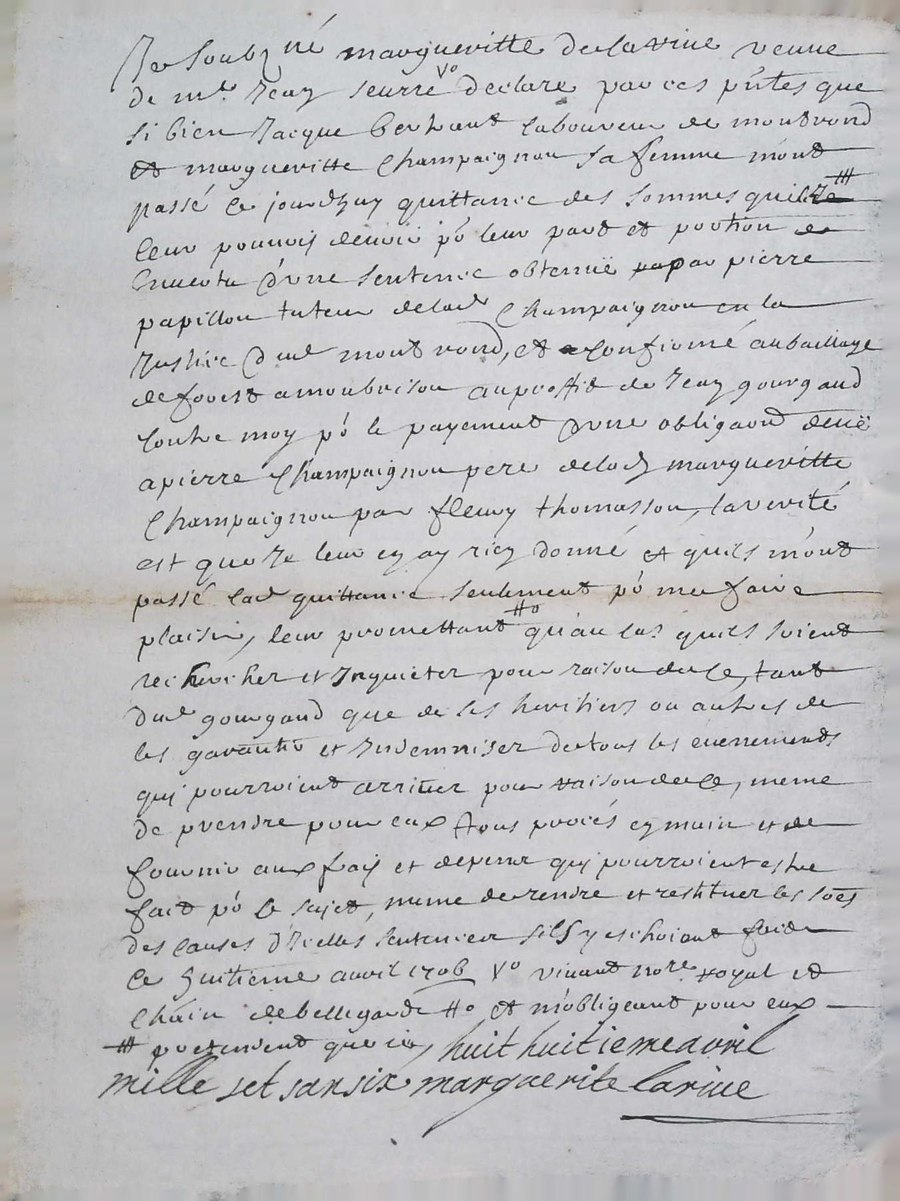 Je soubz né margueritte delarive veuve
de mre Jean seurre Vo declare par ces pntes que
si bien Jacque berhaut laboureur de montrond
et margueritte Champaignon sa femme m'ont
passé ce jourdhuy quittance des sommes quil Je #
leur pouvois devoir po leur part et portion de
En vertu d'une sentence obtenüe par pierre
papillon tuteur delad Champaignon en la
Justice dud montrond, et confirmé au bailliage
deforest a monbrison au proffit de Jean gourgaud
contre moy po le payement d'une obligaon deuë
a pierre Champaignon pere delad margueritte
Champaignon par fleury thomasson, la verité
est que Je leur en ay rien donné et quils m'ont
passé lad quittance seulement po me faire
plaisir, leur promettant #o qu'au cas quils soient
rechercher et Inquiéter pour raison de ce, tant
dud gourgaud que de ses heritiers ou autres de
les garantir et Indemniser de tous les evenements
qui pourroient arriver pour raison de ce, meme
de prendre pour eux tous procés en main et de
fournir aux frais et depens qui pourroient estre
fait po le sujet, meme de rendre et restituer les soes
des causes d'Icelles sentences sils y eschoient fait
Ce huitieme avril 1706 Vo vivant nore royal et
Chãin de bellegarde #o et m'obligeant pour eux
# pretendent que je, huit huitieme avril
mille set san six marguerite larive